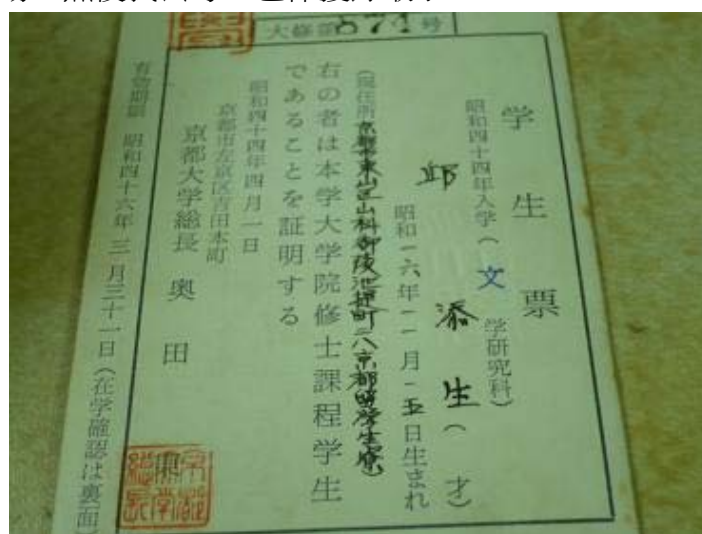 大修第571号
学生票
昭和四十四年入学(文学研究科)
邱添生(才)
昭和一六年一一月一五日生まれ
(現住所京都市東山区山科御陵池堤町二八京都留学生寮)
右の者は本学大学院修士課程学生
であることを証明する
昭和四十四年四月一日
京都市左京区吉田本町
京都大学総長奥田
有効期限 昭和四十六年三月三十一日(在学確認は裏面)